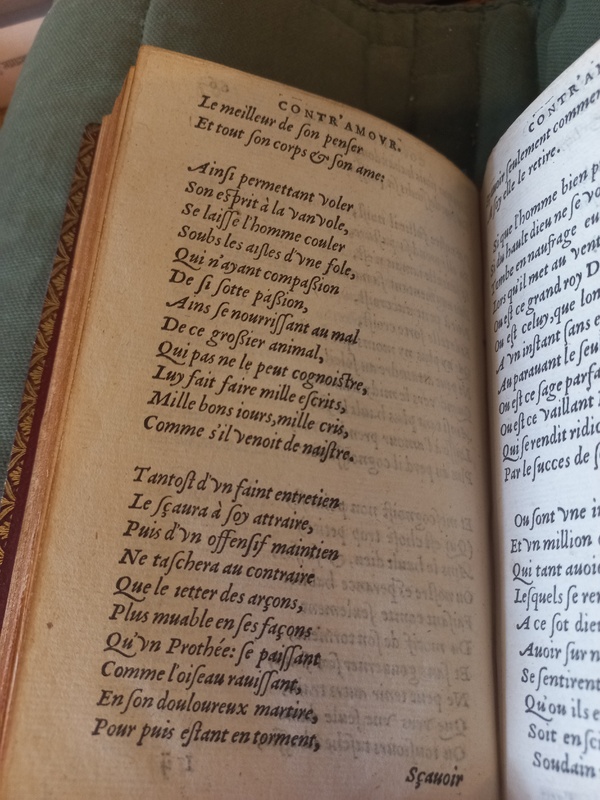 CONTR'AMOVR.
Le meilleur de ſon penſer
Et tout ſon corps & ſon ame:
Ainſi permettant voler
Son eſprit à la vanvole,
Se laiſſe l'homme couler
Soubs les aiſles d'vne fole,
Qui n'ayant compaßion
De ſi ſotte paßion,
Ains ſe nourriſſant au mal
De ce groſsier animal,
Qui pas ne le peut cognoiſtre,
Luy fait faire mille eſcrits,
Mille bons iours, mille cris,
Comme s'il venoit de naiſtre.
Tantoſt d'vn faint entretien
Le ſçaura à ſoy attraire,
Puis d'vn offenſif maintien
Ne taſchera au contraire
Que le ietter des arçons,
Plus muable en ſes façons
Qu'vn Prothée: ſe paiſſant
Comme l'oiſeau rauiſſant,
En ſon douloureux martire,
Pour puis eſtant en torment,
Sçauoir
CONTR'A
ſeulement
ſoy elle le retire.
que l'homme bien
du hault dieu ne ſe
Tombe en naufrage
Lors qu'il met au
Ou eſt ce grand roy D
Ou eſt celuy, que
A vn inſtant ſans
Au parauant le ſeu
Ou eſt ce ſage
Ou eſt ce vaillant
Qui ſe rendit
Par le ſucces de
Ou ſont vne
Et vn million
Qui tant
Leſquels ſe
A ce ſot
Auoir ſur
Se ſentirent
Qu'ou ils
Soit en
Soudain